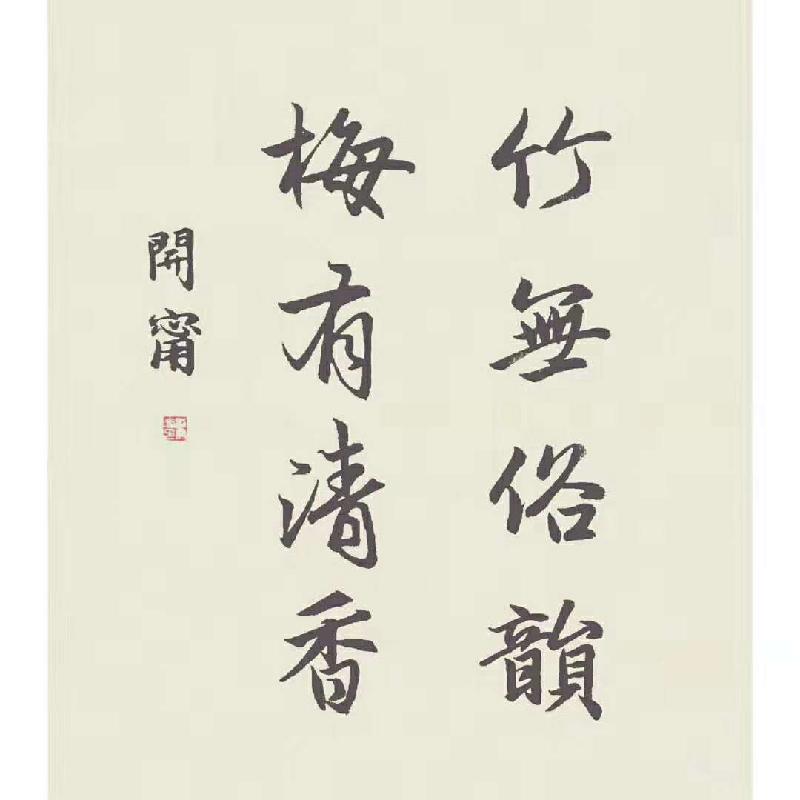 竹無俗韻
梅有清香
開甯